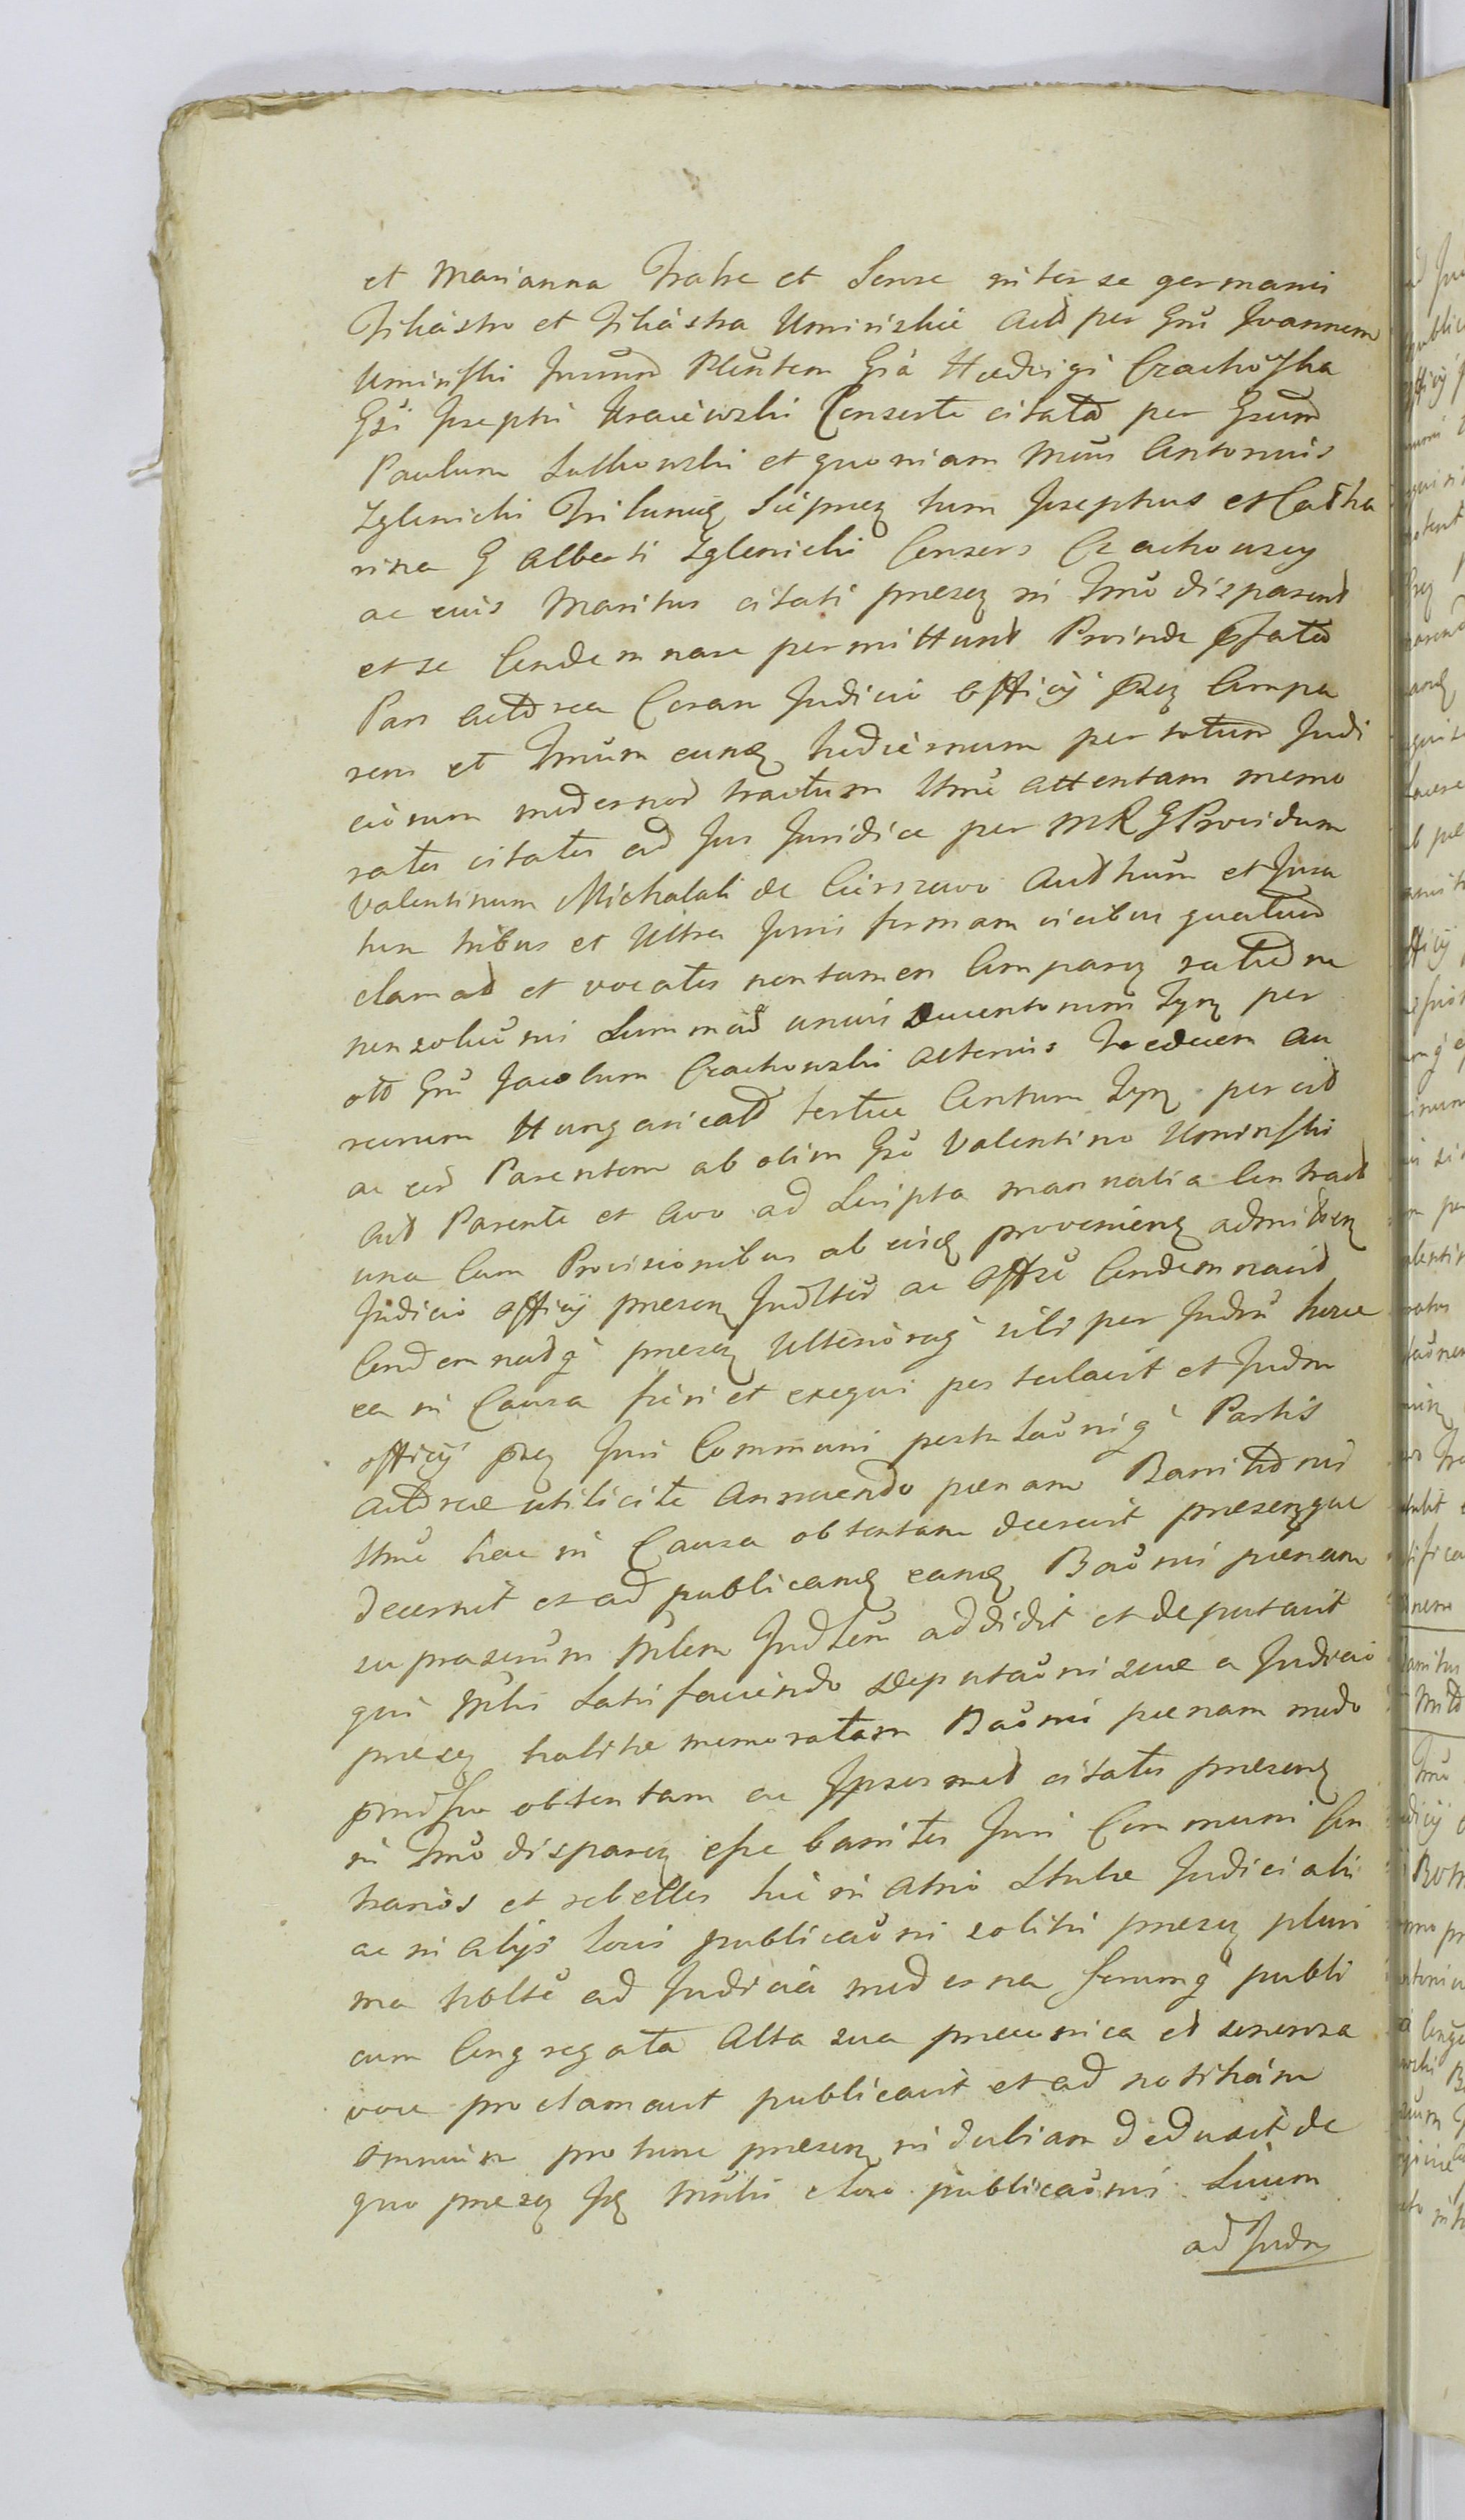 et Marianna Fratre et Sorore inter se germanis
Filiastro et Filiastra Uminskie Actd per Grũ Joannem
Uminski Juuum Plentem Gsa Hedvigi Czachoska
Gsi Josephi Uraiewski Consorte citatd per Gsum
Paulum Lutkowski et quoniam Mcus Antonius
Zglenicki Tribunus Sieprceņ tum Josephus et Catha
rina G Alberti Zglenicki Consors Czachowscy
ac euis Maritus citati preseņ in Tmo disparent
et se Condemnare permittunt Proinde Pfata
Pars actdrea Coram Judicio officij Pseņ Compa
rens et Tmum eunđ hodiernum per totum Judi
ciorum modernor tractum Itme attentans memo
ratos citatos ad Jus Juridice per MR G Providum
Valentinum Michalak de Cierszewo Authum et Jura
tum tribus et Ultra Juris formam vicibus quatuor
clamatd et vocatos nontamen Compareņ ratione
nonsolũnis Summar unius Ducentorum Zynņ per
otd Grũ Jacobum Czachowski alterius Tredecem Au
reorum Hungaricald tertiae Centum Zynņ per eid
ac eor Parentem ab olim Gso Valentino Uminski
Act Parente et Avo ad Scripta manualia Contract
una Cum Provisionibus ab eisđ provenienđ admitteņ
Judicio officij preseņ Judltur ac Offso Condemnavit
Condemnatq preseņ Ulterioraq sibi per Judm hocce
ea in Causa fieri et exequi postulavit et Judm
officij Pseņ Juri Communi postulaonig Partis
actdreae utilicite annuendo poenam Bannitionis
Itme hac in Causa obtentam decrevit presenņque
decernit et ad publicanđ eanđ Baonis poenam
suprascrum Mlem Judlem addidit et deputavit
qui Mlis Satisfaciendo Deputaoni suae a Judicio
preseņ habitae memoratam Baonis poenam modo
pmisso obtentam ac Ipsosmet citatos presenđ
in Tmo dispareņ esse bannitos Juri Communi Con
trarios et rebelles hic in atrio Stubae Judicialis
ac in alijs locis publicaoni solitis preseņ pluri
ma noblte ad Judicia moderna forumq publi
cum Congregata Alta sua praeconica et sonorosa
voce proclamavit publicavit et ad notitiam
omnium protunc preseņ indubiam deduxit de
quo preseņ Jđ Mnlis Coro publicaonis Suum
ad Judm